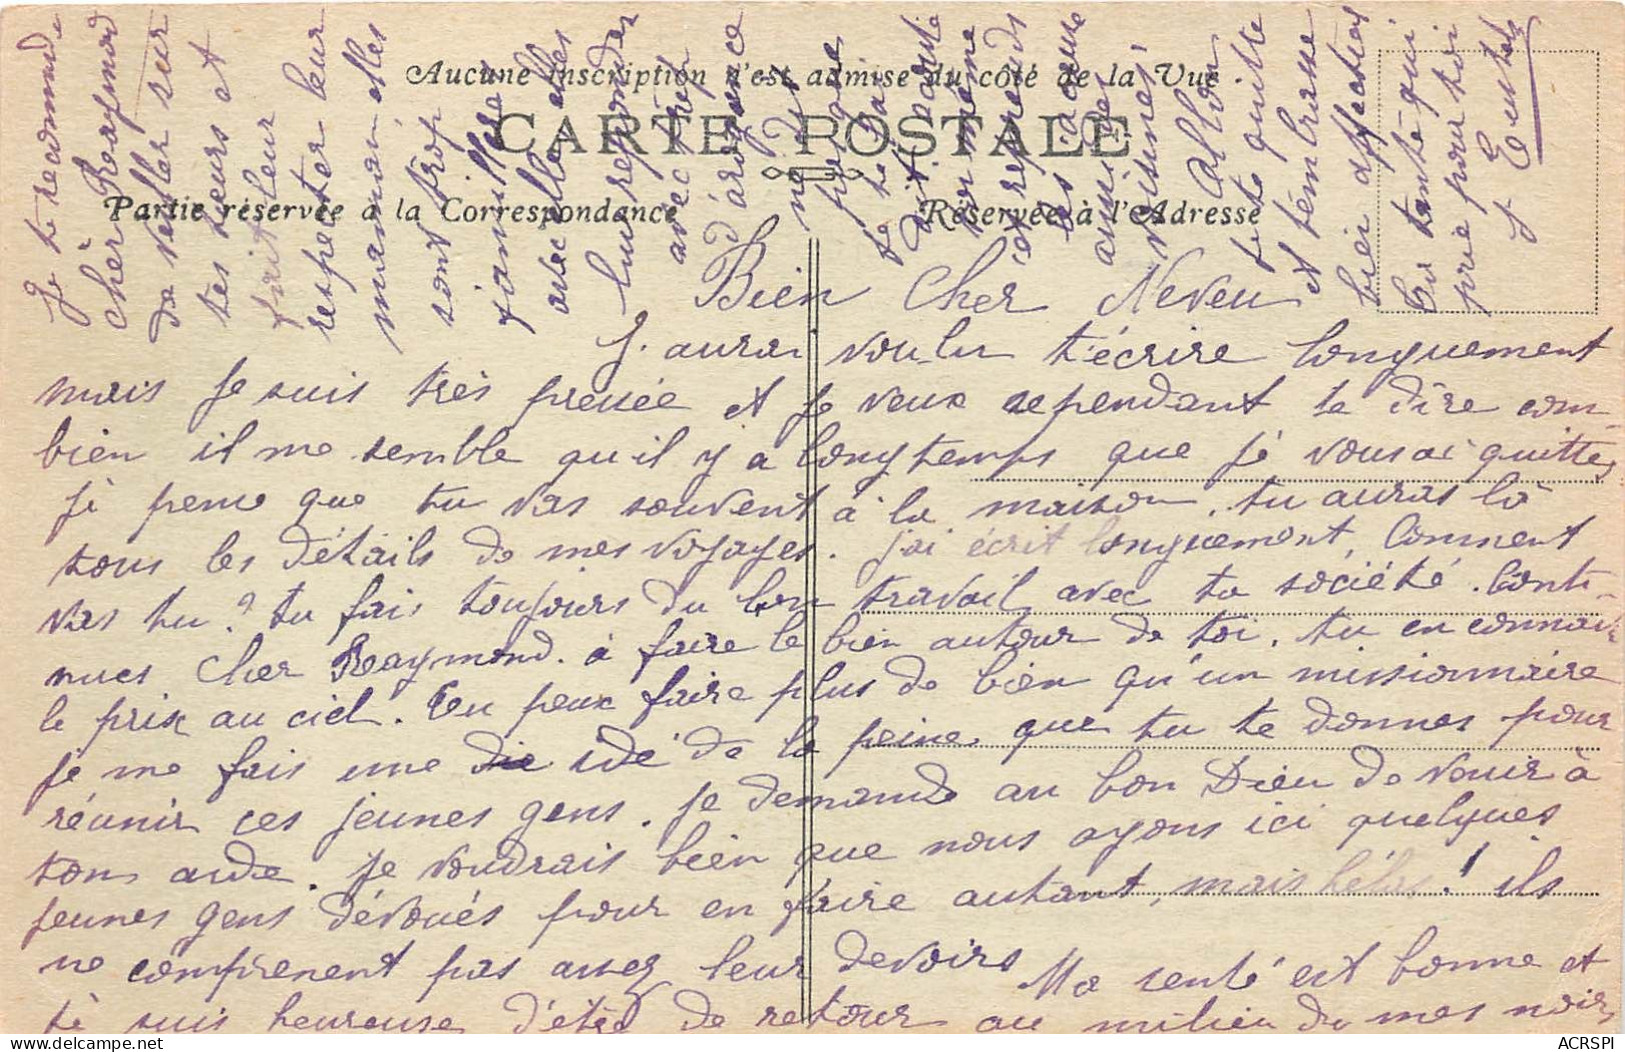 Aucune inscription n'est admise du côté de la Vue.
CARTE POSTALE
Partie réservée à la Correspondance
Réservée à l'Adresse
Bien Cher Neveu
J. aurai voulu t'écrire longuement
mais je suis très pressée et je veux cependant te dire com-
bien il me semble qu'il y a longtemps que je vous ai quittés
je pense que tu vas souvent à la maison, tu auras là
tous les détails de mes voyages. j'ai écrit longuement, Comment
vas tu? tu fais toujours du bon travail avec ta société. Conti-
nues Cher Raymond. à faire le bien autour de toi, tu en connais
le prix au ciel. Tu peux faire plus de bien qu'un missionnaire
je me fais une idé de la peine que tu te donnes pour
réunir ces jeunes gens. je demande au bon Dieu de venir à
ton aide. je voudrais bien que nous ayons ici quelques
jeunes gens dévoués pour en faire autant, mais hélas! ils
ne comprenent pas assez leur devoirs Ma senté est bonne et
je suis heureuse d'être de retour au milieu de mes noirs
Je te recommande
cher Raymond
de veiller sur
tes sœurs et
fait leur
respecter leur
maman, elles
sont trop
familières
avec elle elles
lui reponder
avec trop
d'arogance
ne dis
pas que
te l'ai
dit. toute
toi même
et reprends
les acause
amies
visines,
Allon
je te quitte
et t'embrasse
bien affectueu
Ta tante qui
prie pour toi
J Eustel
ACRSPI